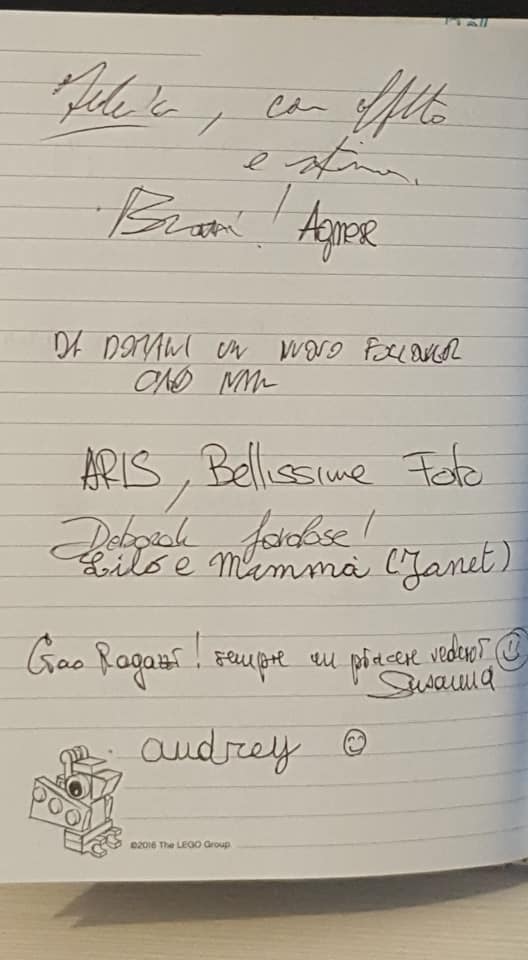 con affetto
e stima.
Bravi! Agnese
DA DOMANI UN NUOVO FOLLOWER
CIAO
ARIS, Bellissime Foto
Deborah favolose!
Lilò e Mamma (Janet)
Ciao Ragazzi! sempre un piacere vedervi
Susanna
audrey
©2016 The LEGO Group